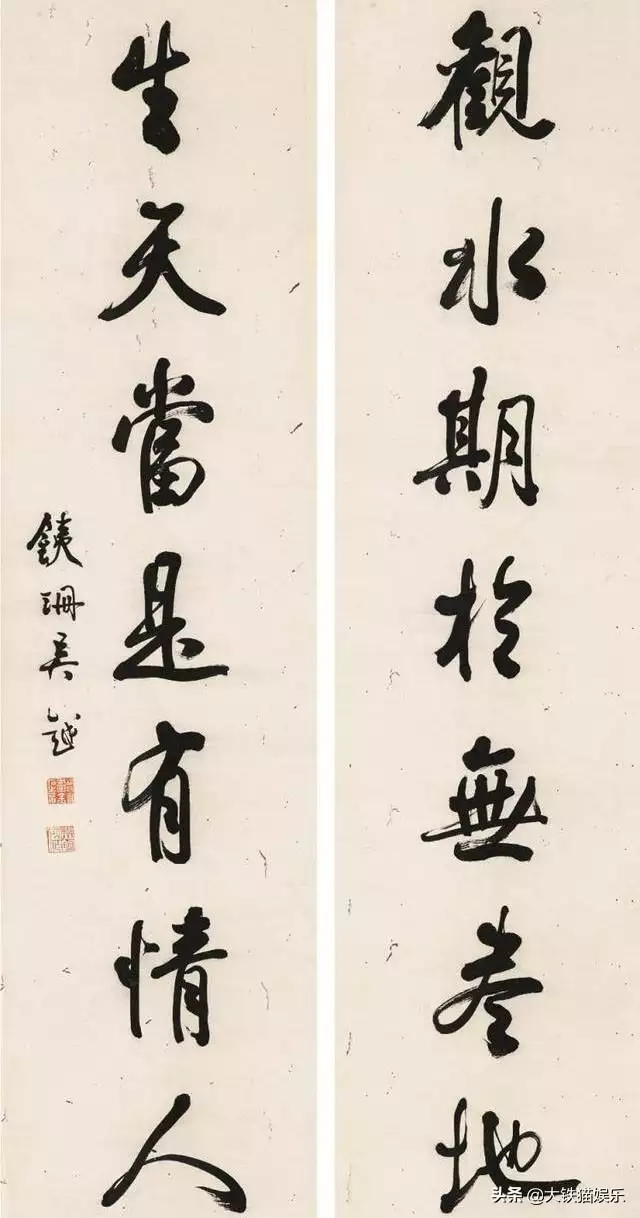 觀水期於無盡地
生天當是有情人
銕珊吳越
头条 @大铁猫娱乐